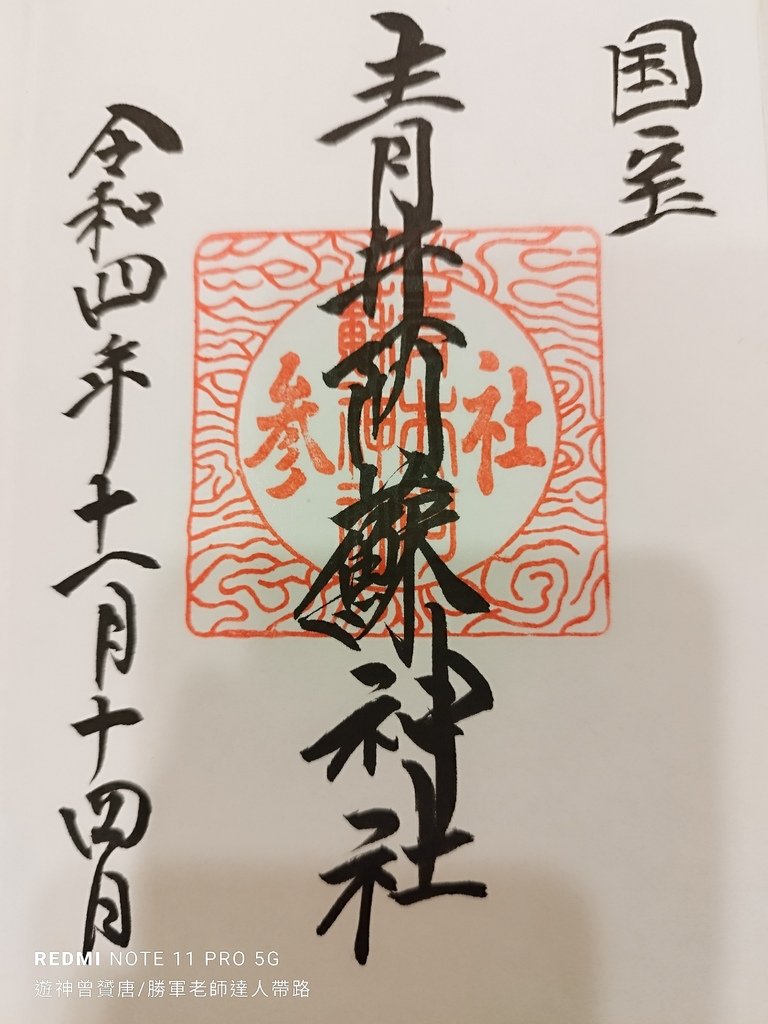 国宝
青井阿蘇神社
社参
令和四年十一月十四日
REDMI NOTE 11 PRO 5G
遊神曾贇唐/勝軍老師達人帶路